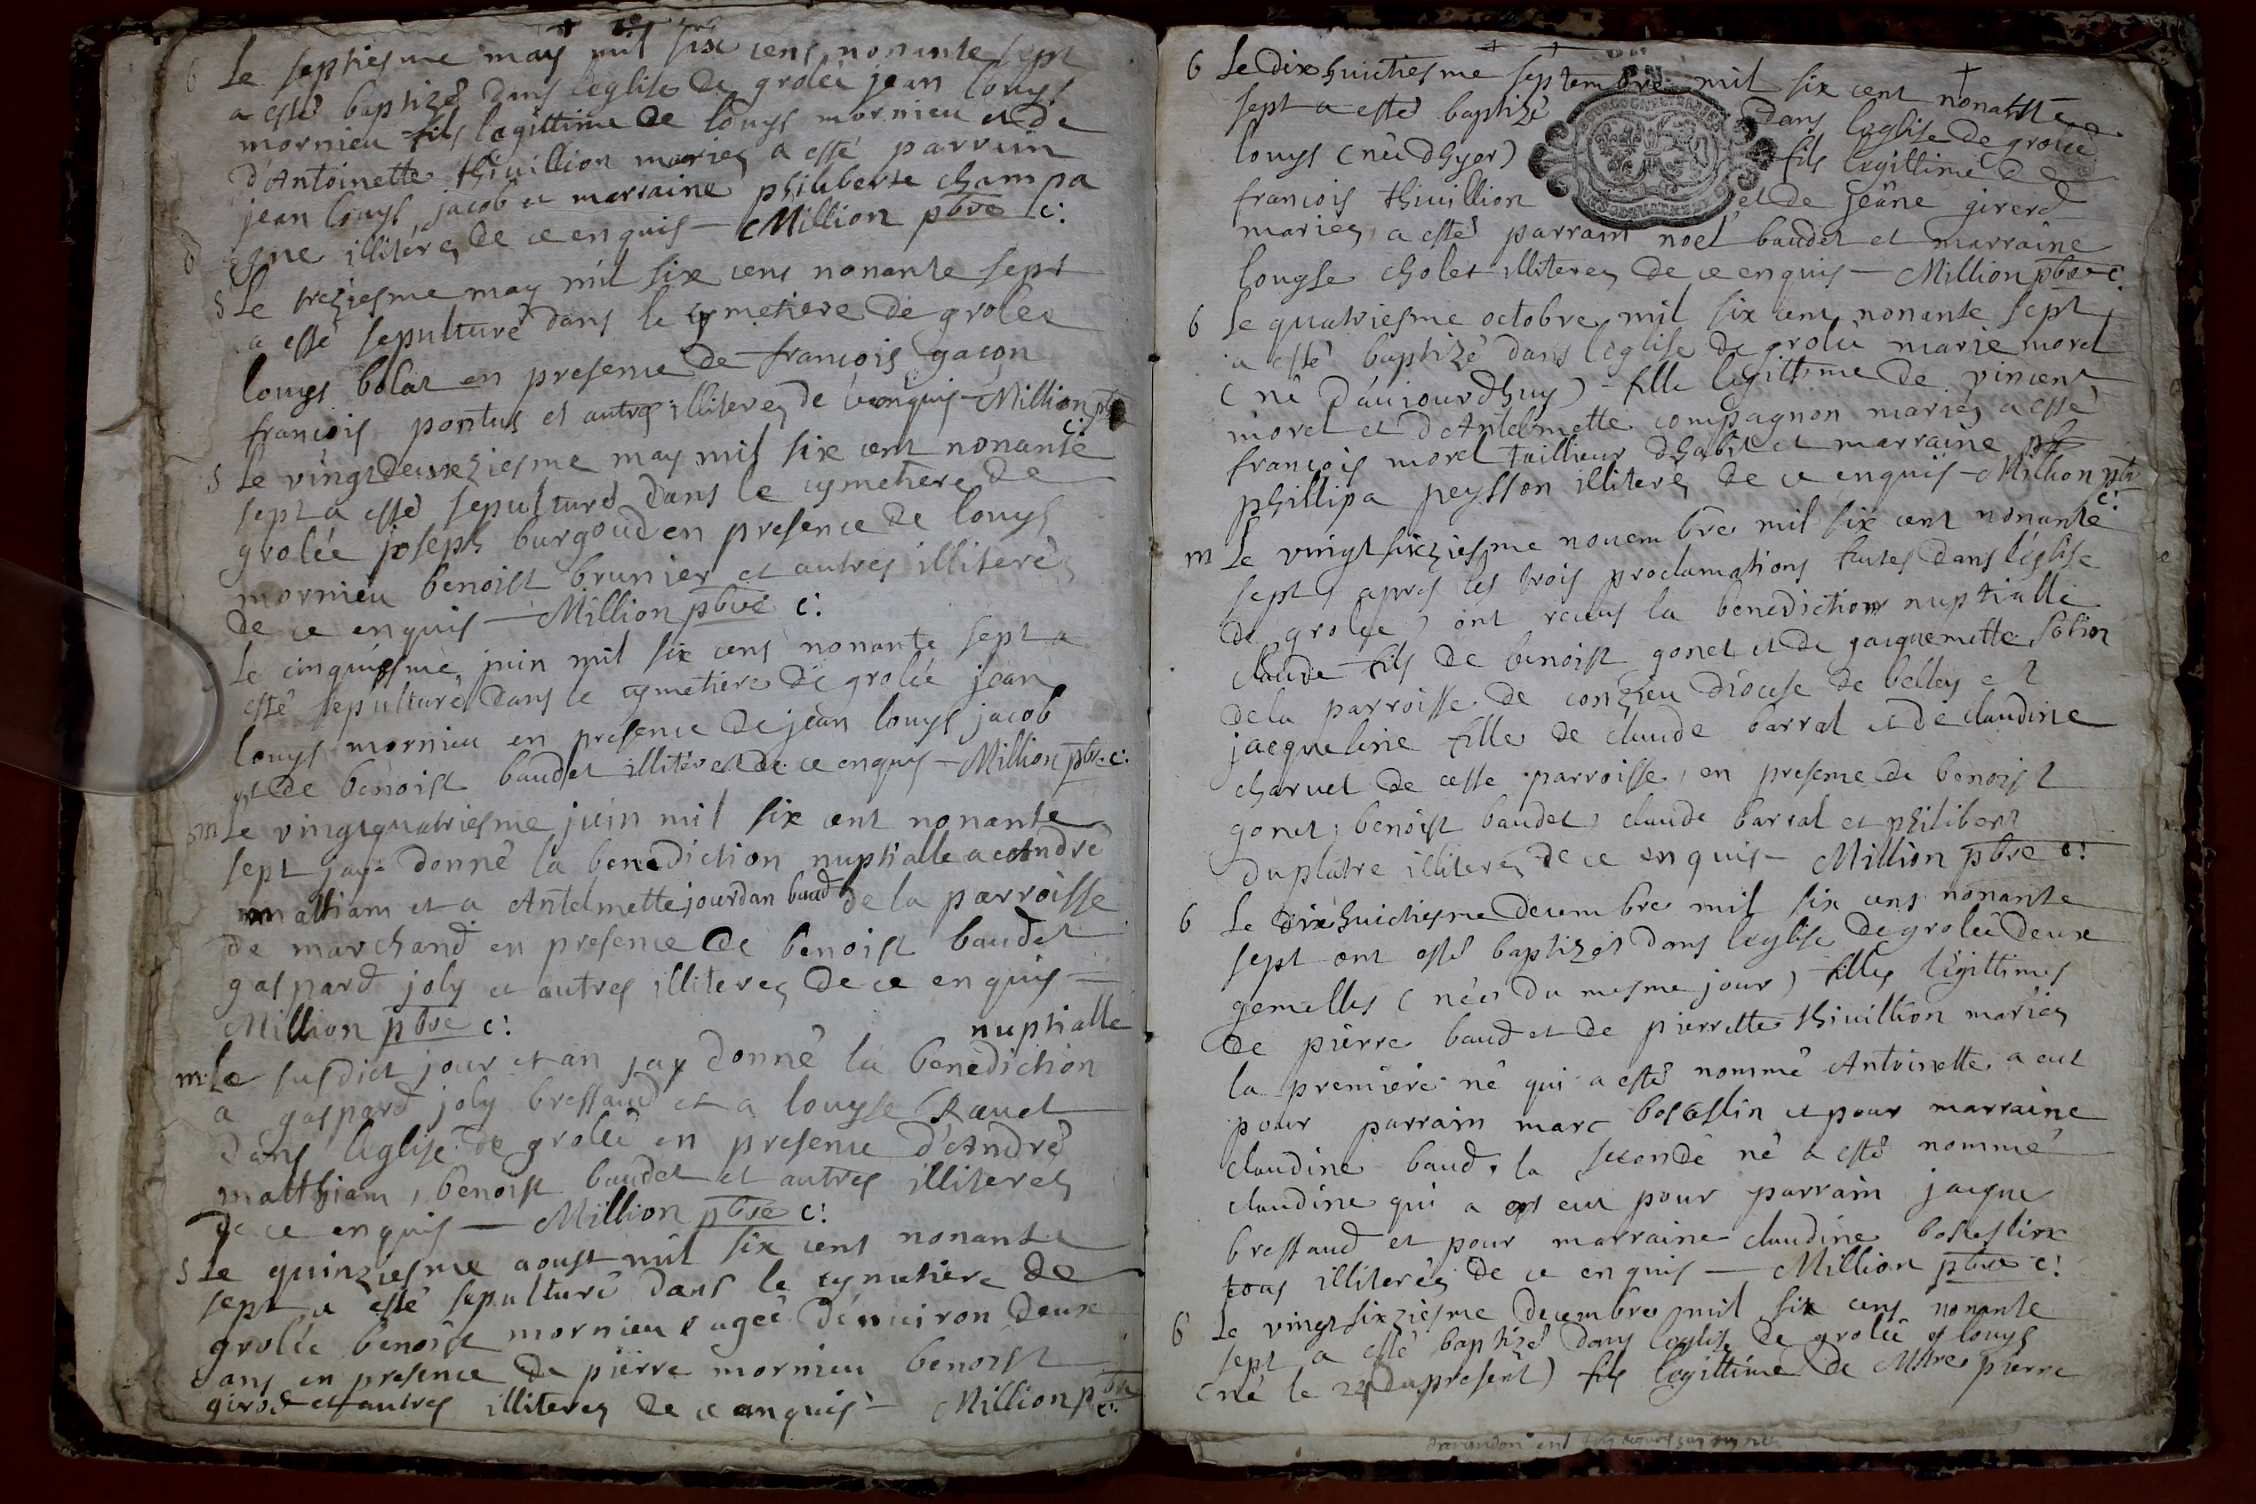 b Le septiesme may mil six cens nonante sept
a esté baptizé dans leglise de grolée jean louys
mornieu fils legittime de louys mornieu et de
d'Antoinette thivillion mariez a esté parrain
jean louys jacob et marraine philiberte champa
gne illiterez de ce enquis — Million pbre c:
S Le treziesme may mil six cens nonante sept
a esté sepulturé dans le cymetiere de grolée
louys bolat en presence de françois gaçon
françois pontus et autres illiterez de ce enquis — Million pbre
c:
S Le vingtdeuxziesme may mil six cent nonante
sept a esté sepulturé dans le cymetiere de
grolée joseph burgoud en presence de louys
mornieu benoist brunier et autres illiterez
de ce enquis — Million pbre c:
Le cinquiesme juin mil six cens nonante sept a
esté sepulturé dans le cymetiere de grolée jean
louys mornieu en presence de jean louys jacob
et de benoist baudet illiterez de ce enquis — Million pbre c:
m Le vingtquatriesme juin mil six cent nonante
sept jay donné la benediction nuptialle a Andre
matthiam et a Antelmette jourdan baud de la parroisse
de marchand en presence de benoist baudet
gaspard joly et autres illiterez de ce enquis —
Million pbre c:
nuptialle
m Le susdict jour et an jay donné la benediction
a gaspard joly bressaud et a louyse Ravet
dans leglise de grolée en presence d'Andre
matthiam, benoist baudet et autres illiterez
de ce enquis — Million pbre c:
S Le quinziesme aoust mil six cens nonante
sept a esté sepulturé dans le cymetiere de
grolée benoist mornieu ageé d'environ deux
ans en presence de pierre mornieu benoist
girod et autres illiterez de ce enquis — Million pbre
c:
b Le dixhuictiesme septembre mil six cent nonante
sept a esté baptizé dans leglise de grolée
louys (né dhyer) fils legittime de
françois thivillion et de jeâne girerd
mariez, a esté parrain noel baudet et marraine
louyse cholet illiterez de ce enquis — Million pbre c:
b Le quatriesme octobre mil six cens nonante sept
a esté baptizé dans leglise de grolée marie morel
(né d'aujourdhuy) fille legittime de vincent
morel et d'Antelmette compagnon mariez a esté
françois morel taillieur dhabit et marraine
phillipa peysson illiterez de ce enquis — Million pbre
c:
m Le vingtsixziesme novembre mil six cent nonante
sept, apres les trois proclamations faites dans l'eglise
de grolée, ont receus la benediction nuptialle
claude fils de benoist gonet et de jacquemette
de la parroisse de conzieu diocese de belley et
jacqueline fille de claude barral et de claudine
charvet de cette parroisse, en presence de benoist
gonet, benoist baudet, claude barral et philibert
duplâtre illiterez de ce enquis — Million pbre c:
b Le dixhuictiesme decembre mil six cens nonante
sept ont esté baptizés dans leglise de grolée deux
gemelles (nées du mesme jour) filles legittimes
de pierre baud et de pierrette thivillion mariez
la premiere né qui a esté nommé Antoinette a eut
pour parrain marc bostelin et pour marraine
claudine baud, la seconde né a esté nommé
claudine qui a eut pour parrain jacque
bressaud et pour marraine claudine bostelin
tous illiterez de ce enquis — Million pbre c:
b Le vingtsixziesme decembre mil six cens nonante
sept a esté baptizé dans leglise de grolée louys
(né le 24 du present) fils legittime de Mtre pierre